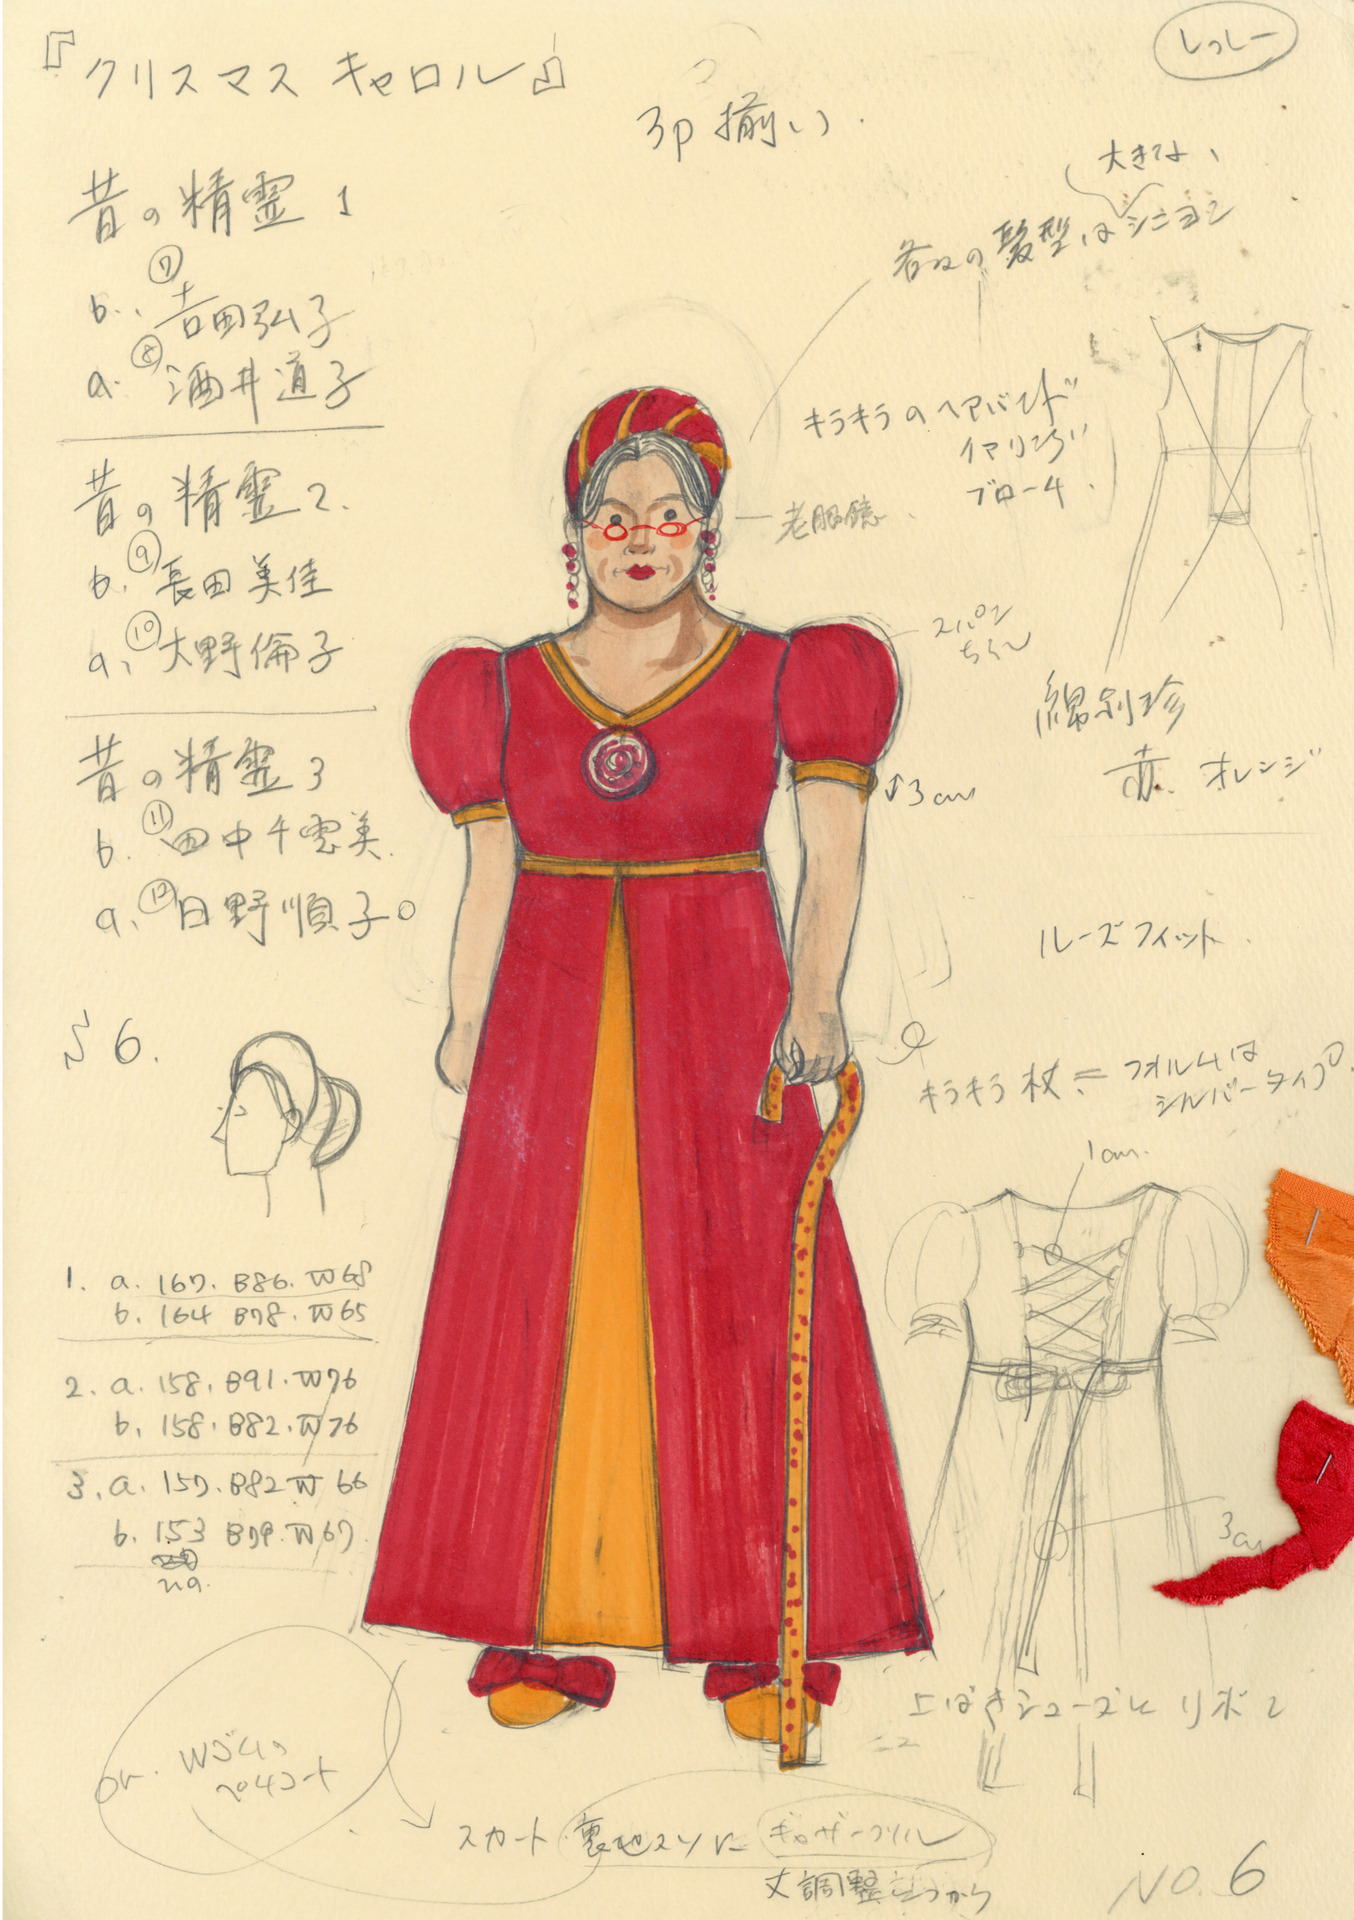 『クリスマス キャロル』
しっしー
3P 揃い.
昔の精霊 1
⑦
b. 吉田弘子
⑧
a. 酒井道子
昔の精霊 2.
⑨
b. 長田美佳
⑩
a. 大野倫子
昔の精霊 3
⑪
b. 田中千恵美.
⑫
a. 日野順子
6.
大きな、
各々の髪型はシニヨン
キラキラのヘアバンド
イヤリング
ブローチ.
老眼鏡.
スパン
ちらし
綿別珍
赤. オレンジ
3cm
ルーズフィット.
キラキラ杖 = フォルムは
シルバータイプ.
1cm.
3cm
1. a. 167. B86. W68
b. 164 B78. W65
2. a. 158. B91. W76
b. 158. B82. W76
3. a. 157. B82 W 66
b. 153 B79. W67
上ばきシューズに リボン
or. Wゴムの
スカート 裏地スソに ギャザーフリル
丈調整
NO. 6